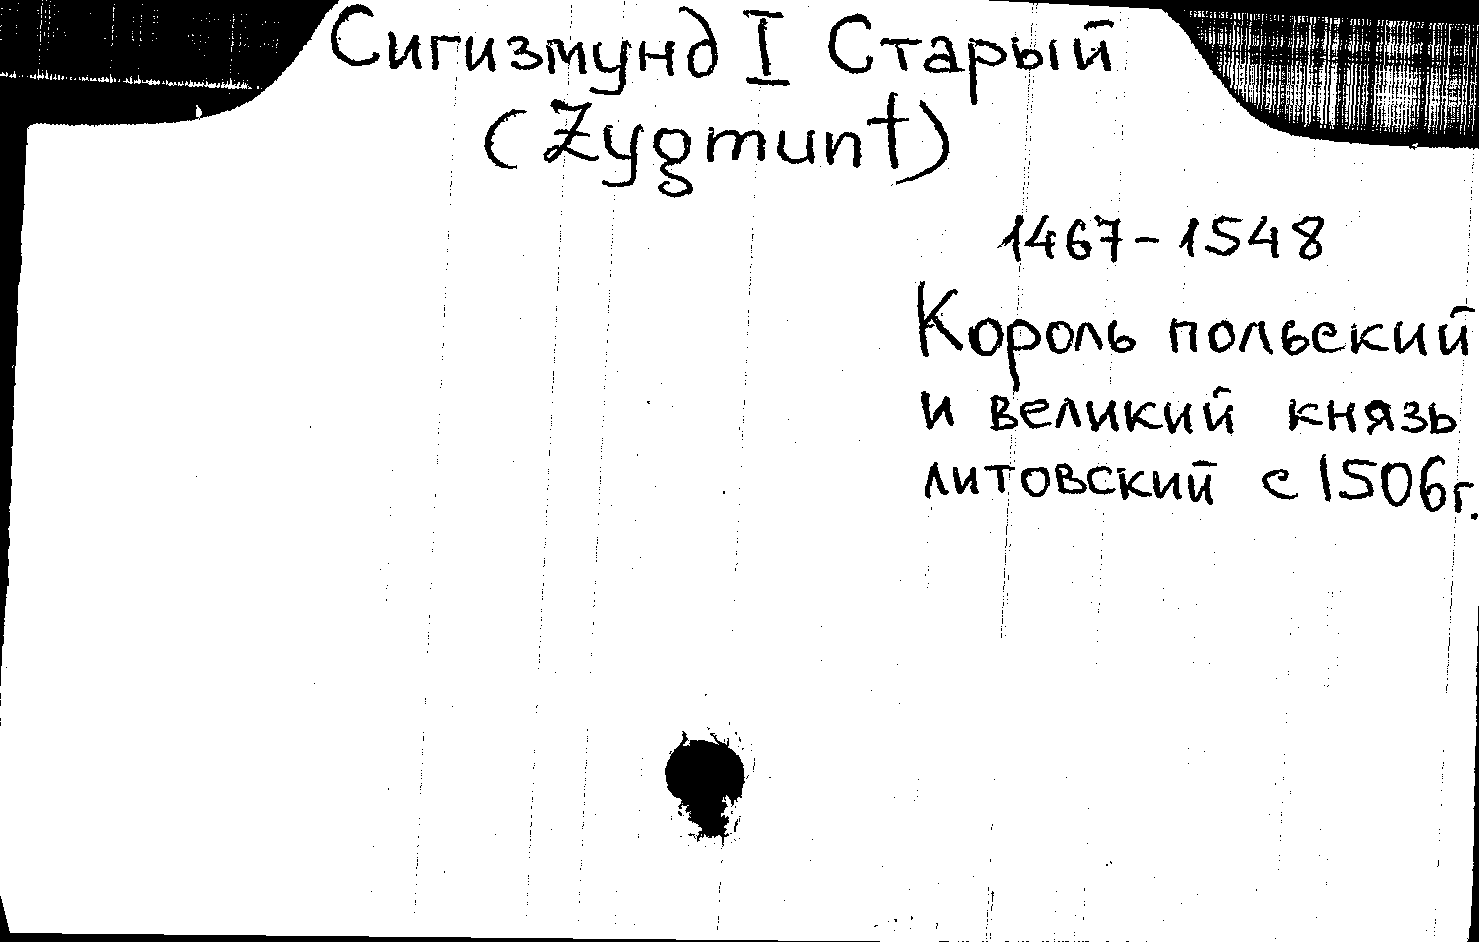 Сигизмунд I Старый
(Zygmunt)
1467-1548
Король польский
и великий князь
литовский с 1506г.